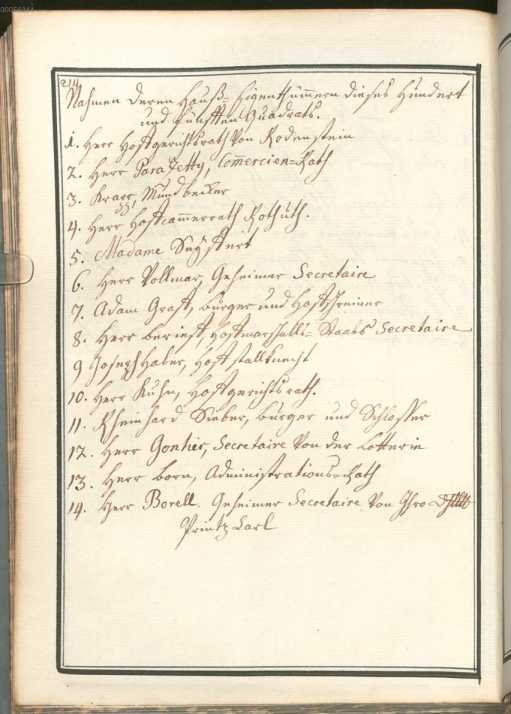 214
Nahmen deren Hauß-Eigenthümmern dieses Hundert
und Fünfften Quadrats.
1. Herr Hofgerichtsrath Von Rodenstein
2. Herr Para Jetty, Comercien-Rath
3. Krazz, Mundbecker
4. Herr Hofcammerrath
5. Madame
6. Herr Vollmar, Geheimer Secretaire
7. Adam Graff, burger und Hoffschreiner
8. Herr Hofmarschalls-Staabs Secretaire
9 Joseph Haber, Hoff stallknecht
10. Herr Kuhn, Hofgerichtsrath.
11. Rheinhard Sieber, burger und Schlosser
12. Herr Gontier, Secretaire Von der Lotterie
13. Herr born, Administrations-Rath
14. Herr Borell Geheimer Secretaire Von Ihro
Printz Carl